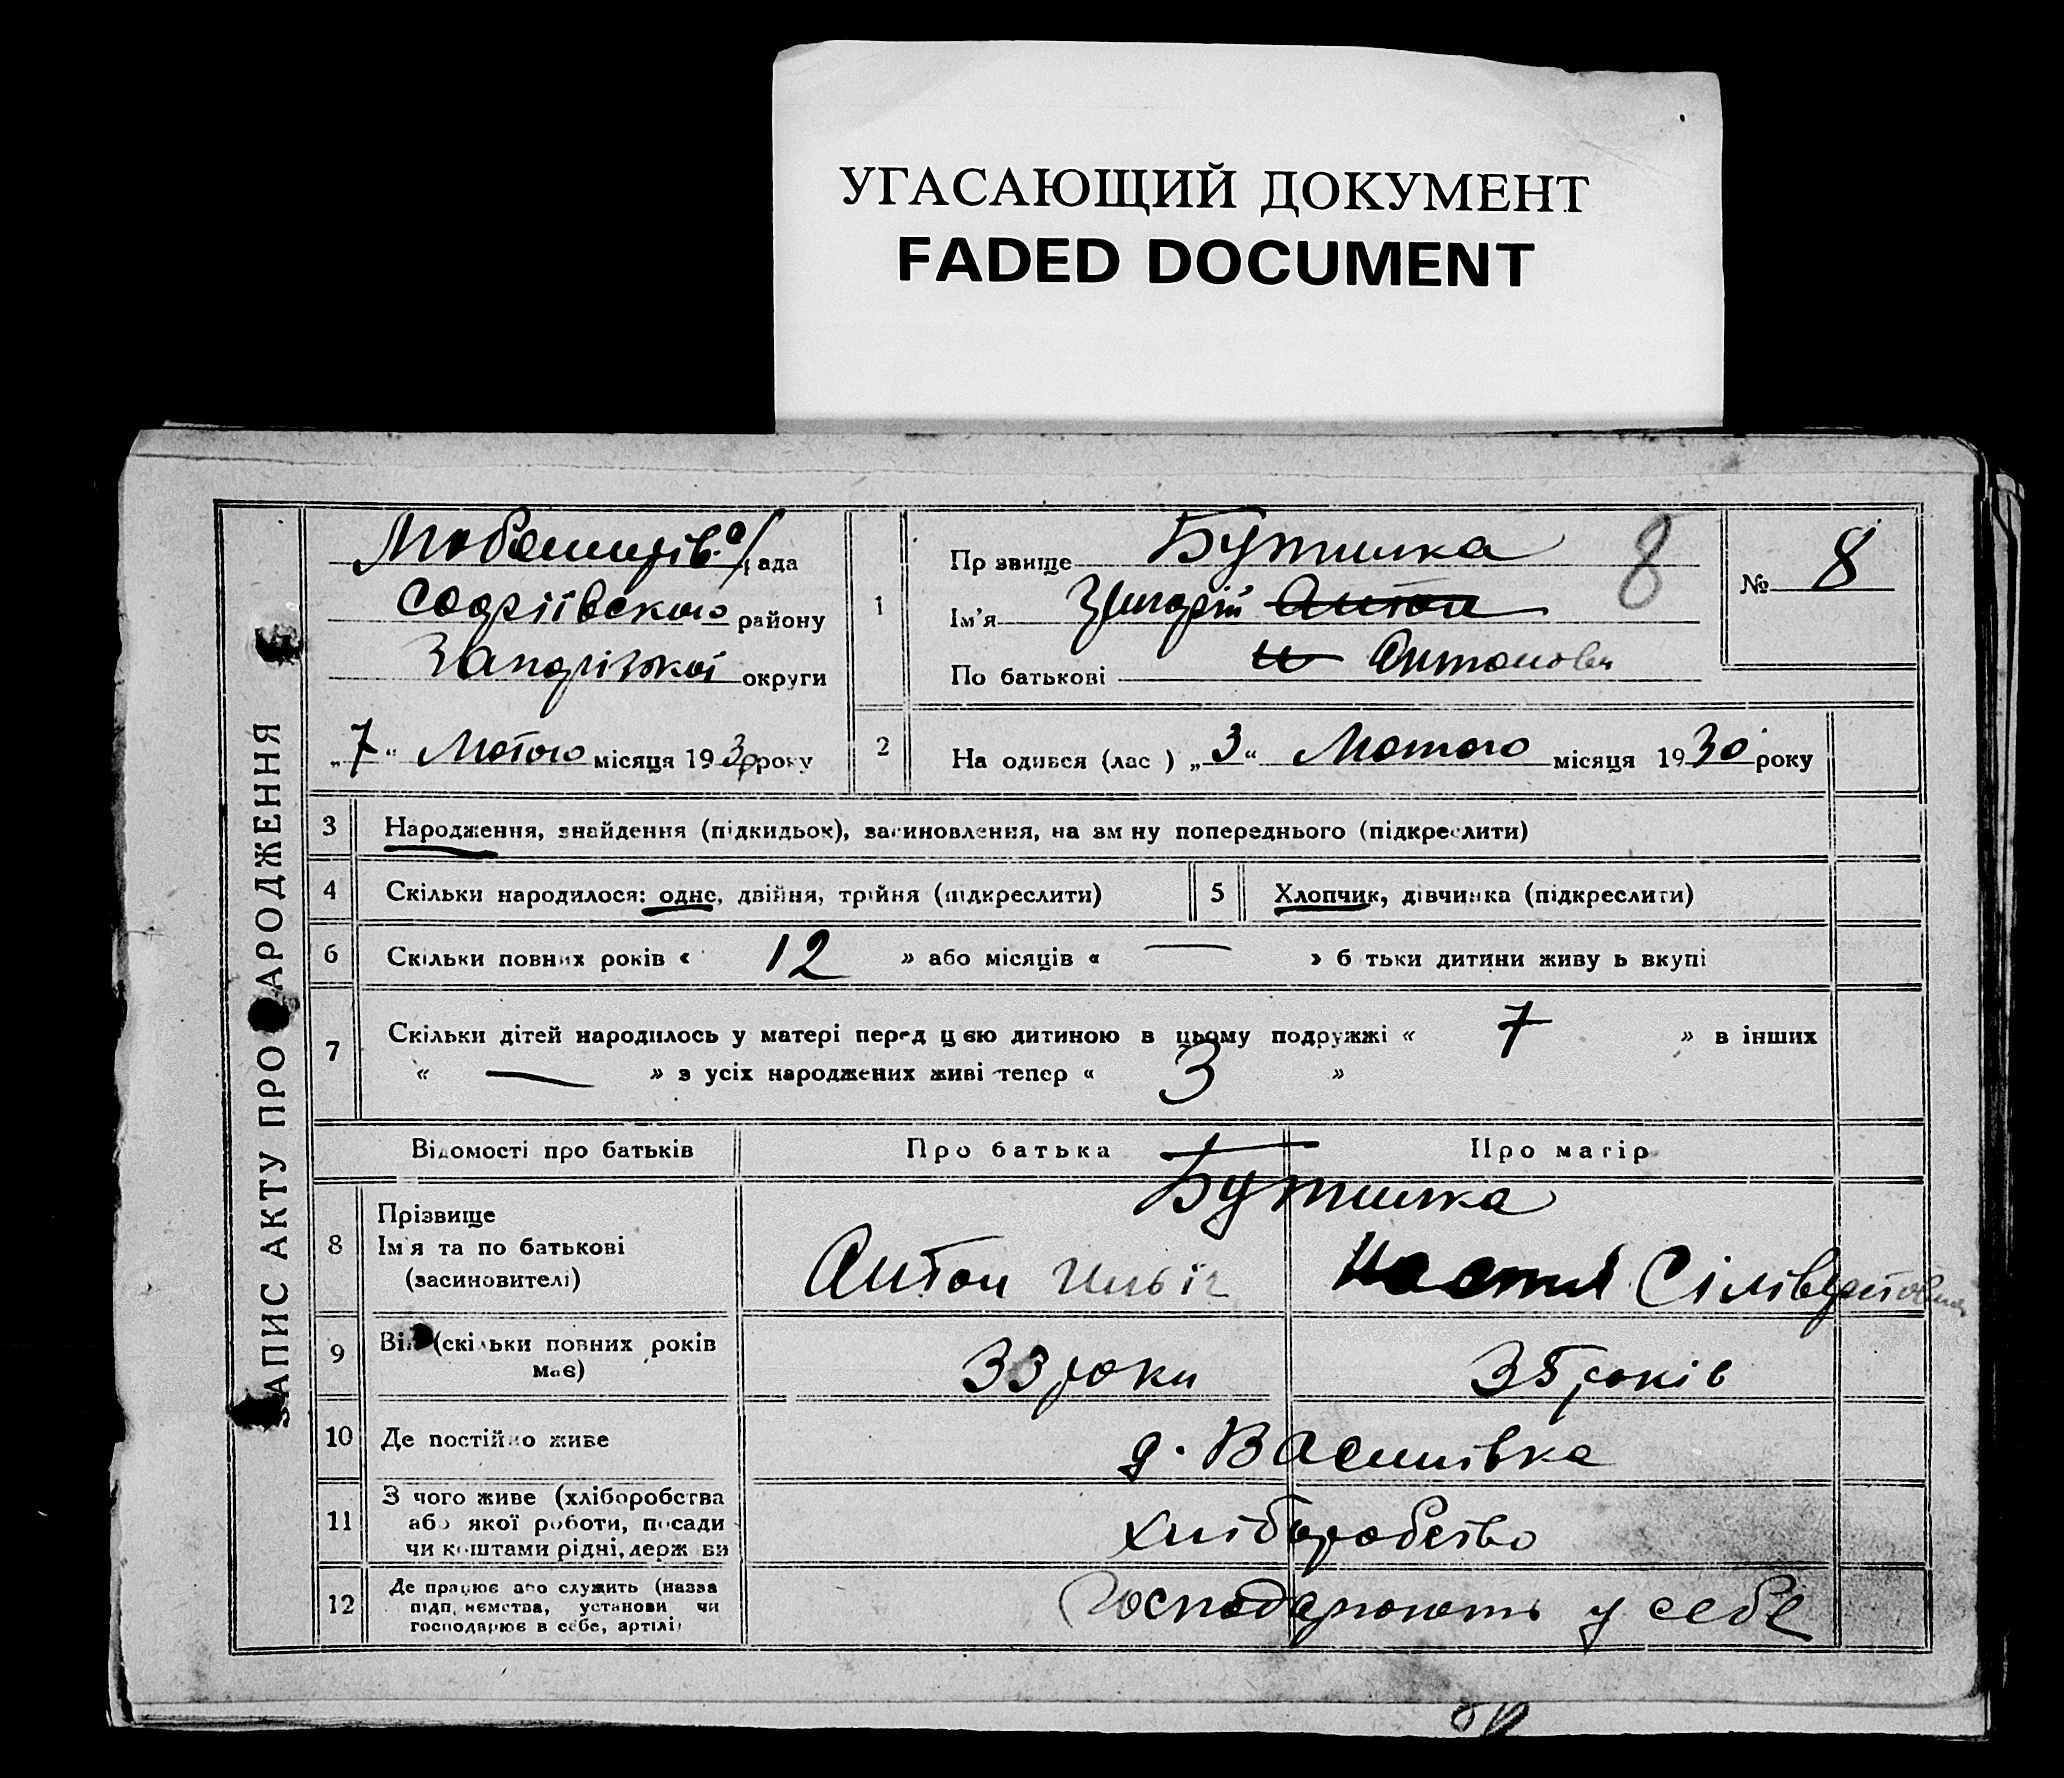 УГАСАЮЩИЙ ДОКУМЕНТ
FADED DOCUMENT
ЗАПИС АКТУ ПРО АРОДЖЕННЯ
рада
району
округи
„7“ Лютого місяця 1930 року
1
Пр звище Бутилка
8
Ім'я Григорій Антон
По батькові и Антонович
№ 8
2 На одився (лас ) „3“ Лютого місяця 1930 року
3 Народження, знайдення (підкидьок), засиновлення, на зм ну попереднього (підкреслити)
4 Скільки народилося: одне, двійня, трійня (підкреслити)
5 Хлопчик, дівчинка (підкреслити)
6 Скільки повних років « 12 » або місяців « — » б тьки дитини живу ь вкупі
7 Скільки дітей народилось у матері перед ц єю дитиною в цьому подружжі « 7 » в інших
« — » з усіх народжених живі тепер « 3 »
Відомості про батьків Про батька Про матір
8 Прізвище Бутилка
Ім'я та по батькові Антон Ильїч Настя Сілівертовна
(засиновителі)
9 Вік (скільки повних років 33 роки 35 років
має)
10 Де постійно живе д. Василівка
11 З чого живе (хліборобства
або якої роботи, посади хліборобство
чи коштами рідні, держ ви
12 Де працює або служить (назва
підп, иємства, установи чи Господарюють у себе
господарює в себе, артілі)